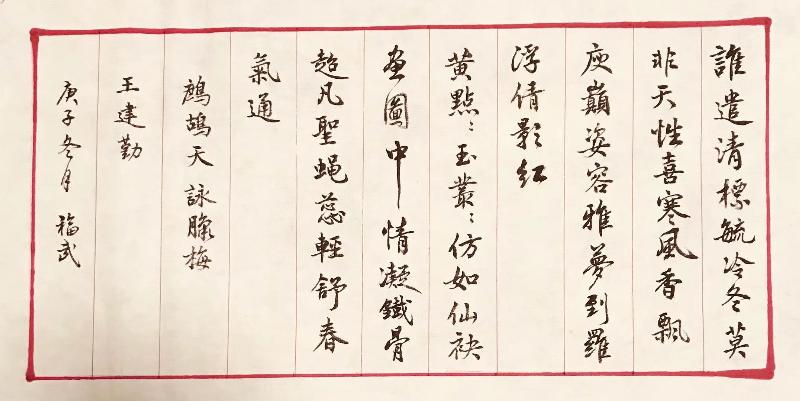 誰遣清標毓冷冬莫
非天性喜寒風香飄
庾巔姿容雅夢到羅
浮倩影紅
黄點〻玉叢〻仿如仙袂
畫圖中情凝鐵骨
超凡聖蠟蕊輕舒春
氣通
鷓鴣天詠臘梅
王建勤
庚子冬月福武